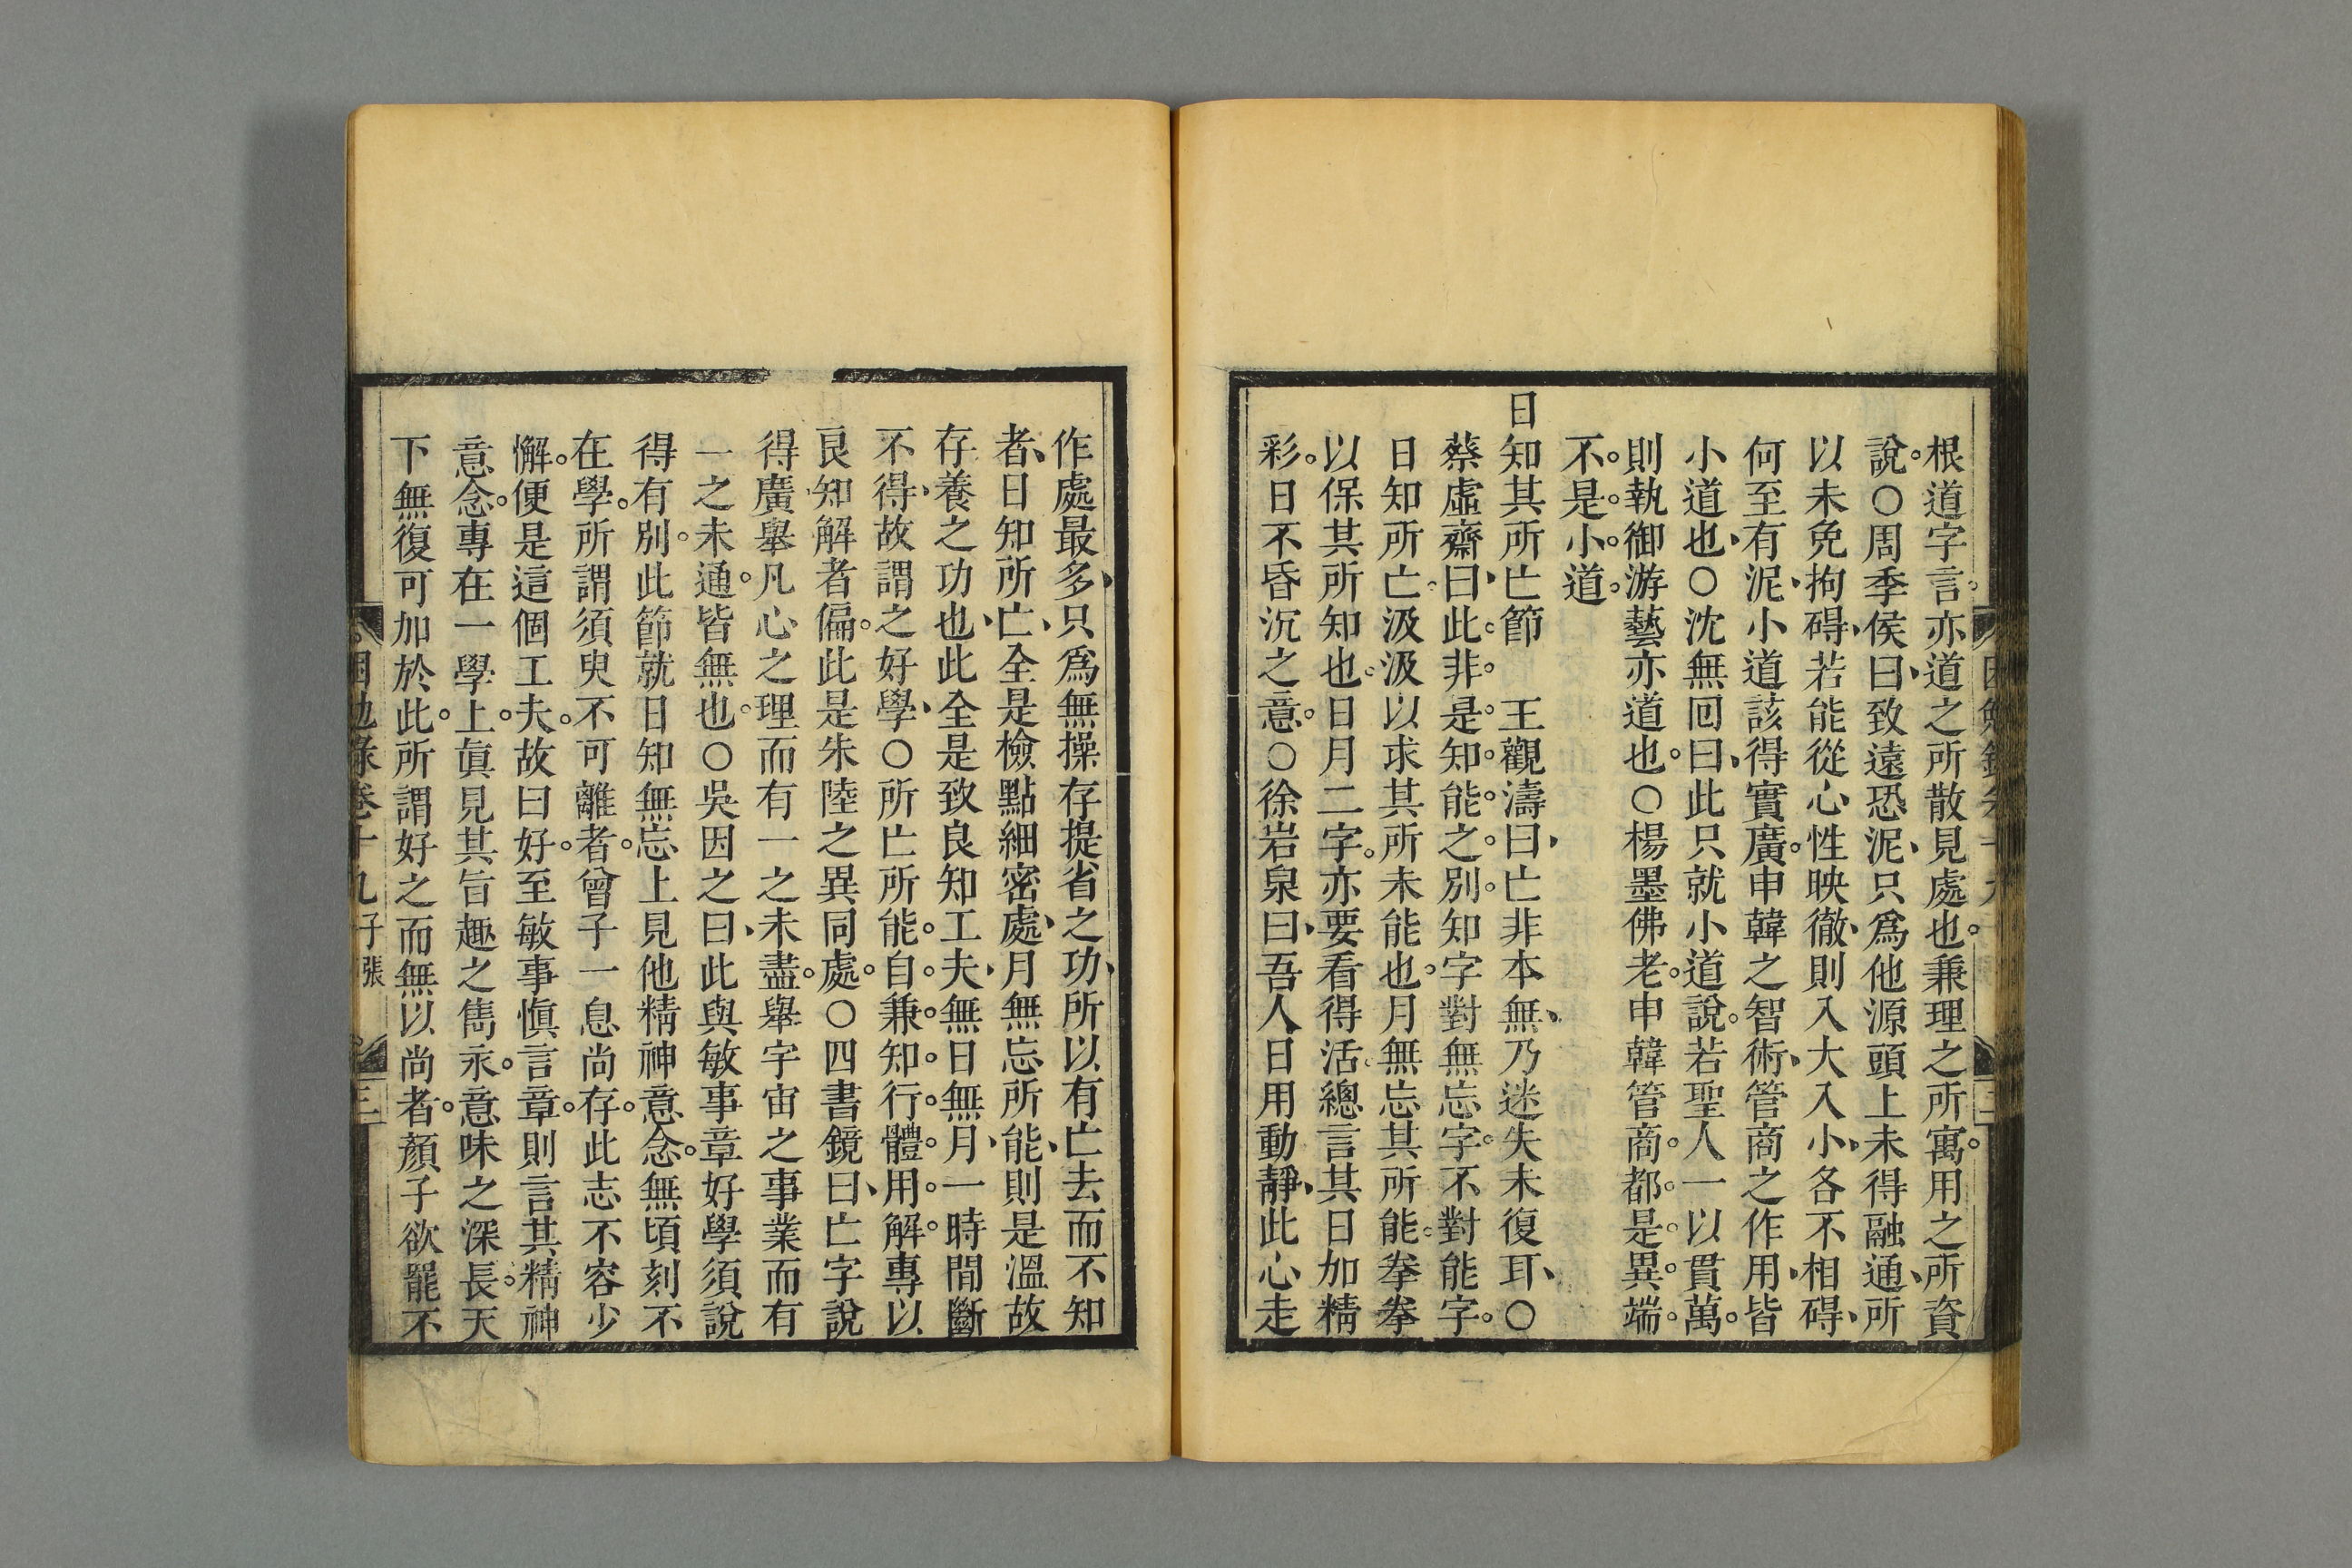 根道字言亦道之所散見處也兼理之所寓用之所資
說○周季侯曰致遠恐泥只爲他源頭上未得融通所
以未免拘碍若能從心性映徹則入大入小各不相碍
何至有泥小道該得實廣申韓之智術管商之作用皆
小道也○沈無回曰此只就小道說若聖人一以貫萬
則執御游藝亦道也○楊墨佛老申韓管商都是異端
不是小道
日知其所亡節　王觀濤曰亡非本無乃迷失未復耳○
蔡虛齋曰此非是知能之別知字對無忘字不對能字
日知所亡汲汲以求其所未能也月無忘其所能拳拳
以保其所知也日月二字亦要看得活總言其日加精
彩日不昏沉之意○徐岩泉曰吾人日用動靜此心走
作處最多只爲無操存提省之功所以有亡去而不知
者日知所亡全是檢點細密處月無忘所能則是溫故
存養之功也此全是致良知工夫無日無月一時間斷
不得故謂之好學○所亡所能自兼知行體用解專以
良知解者偏此是朱陸之異同處○四書鏡曰亡字說
得廣舉凡心之理而有一之未盡舉宇宙之事業而有
一之未通皆無也○吳因之曰此與敏事章好學須說
得有別此節就日知無忘上見他精神意念無頃刻不
在學所謂須臾不可離者曾子一息尚存此志不容少
懈便是這個工夫故曰好至敏事愼言章則言其精神
意念專在一學上眞見其旨趣之雋永意味之深長天
下無復可加於此所謂好之而無以尚者顏子欲罷不
困勉錄卷十九 子張 三